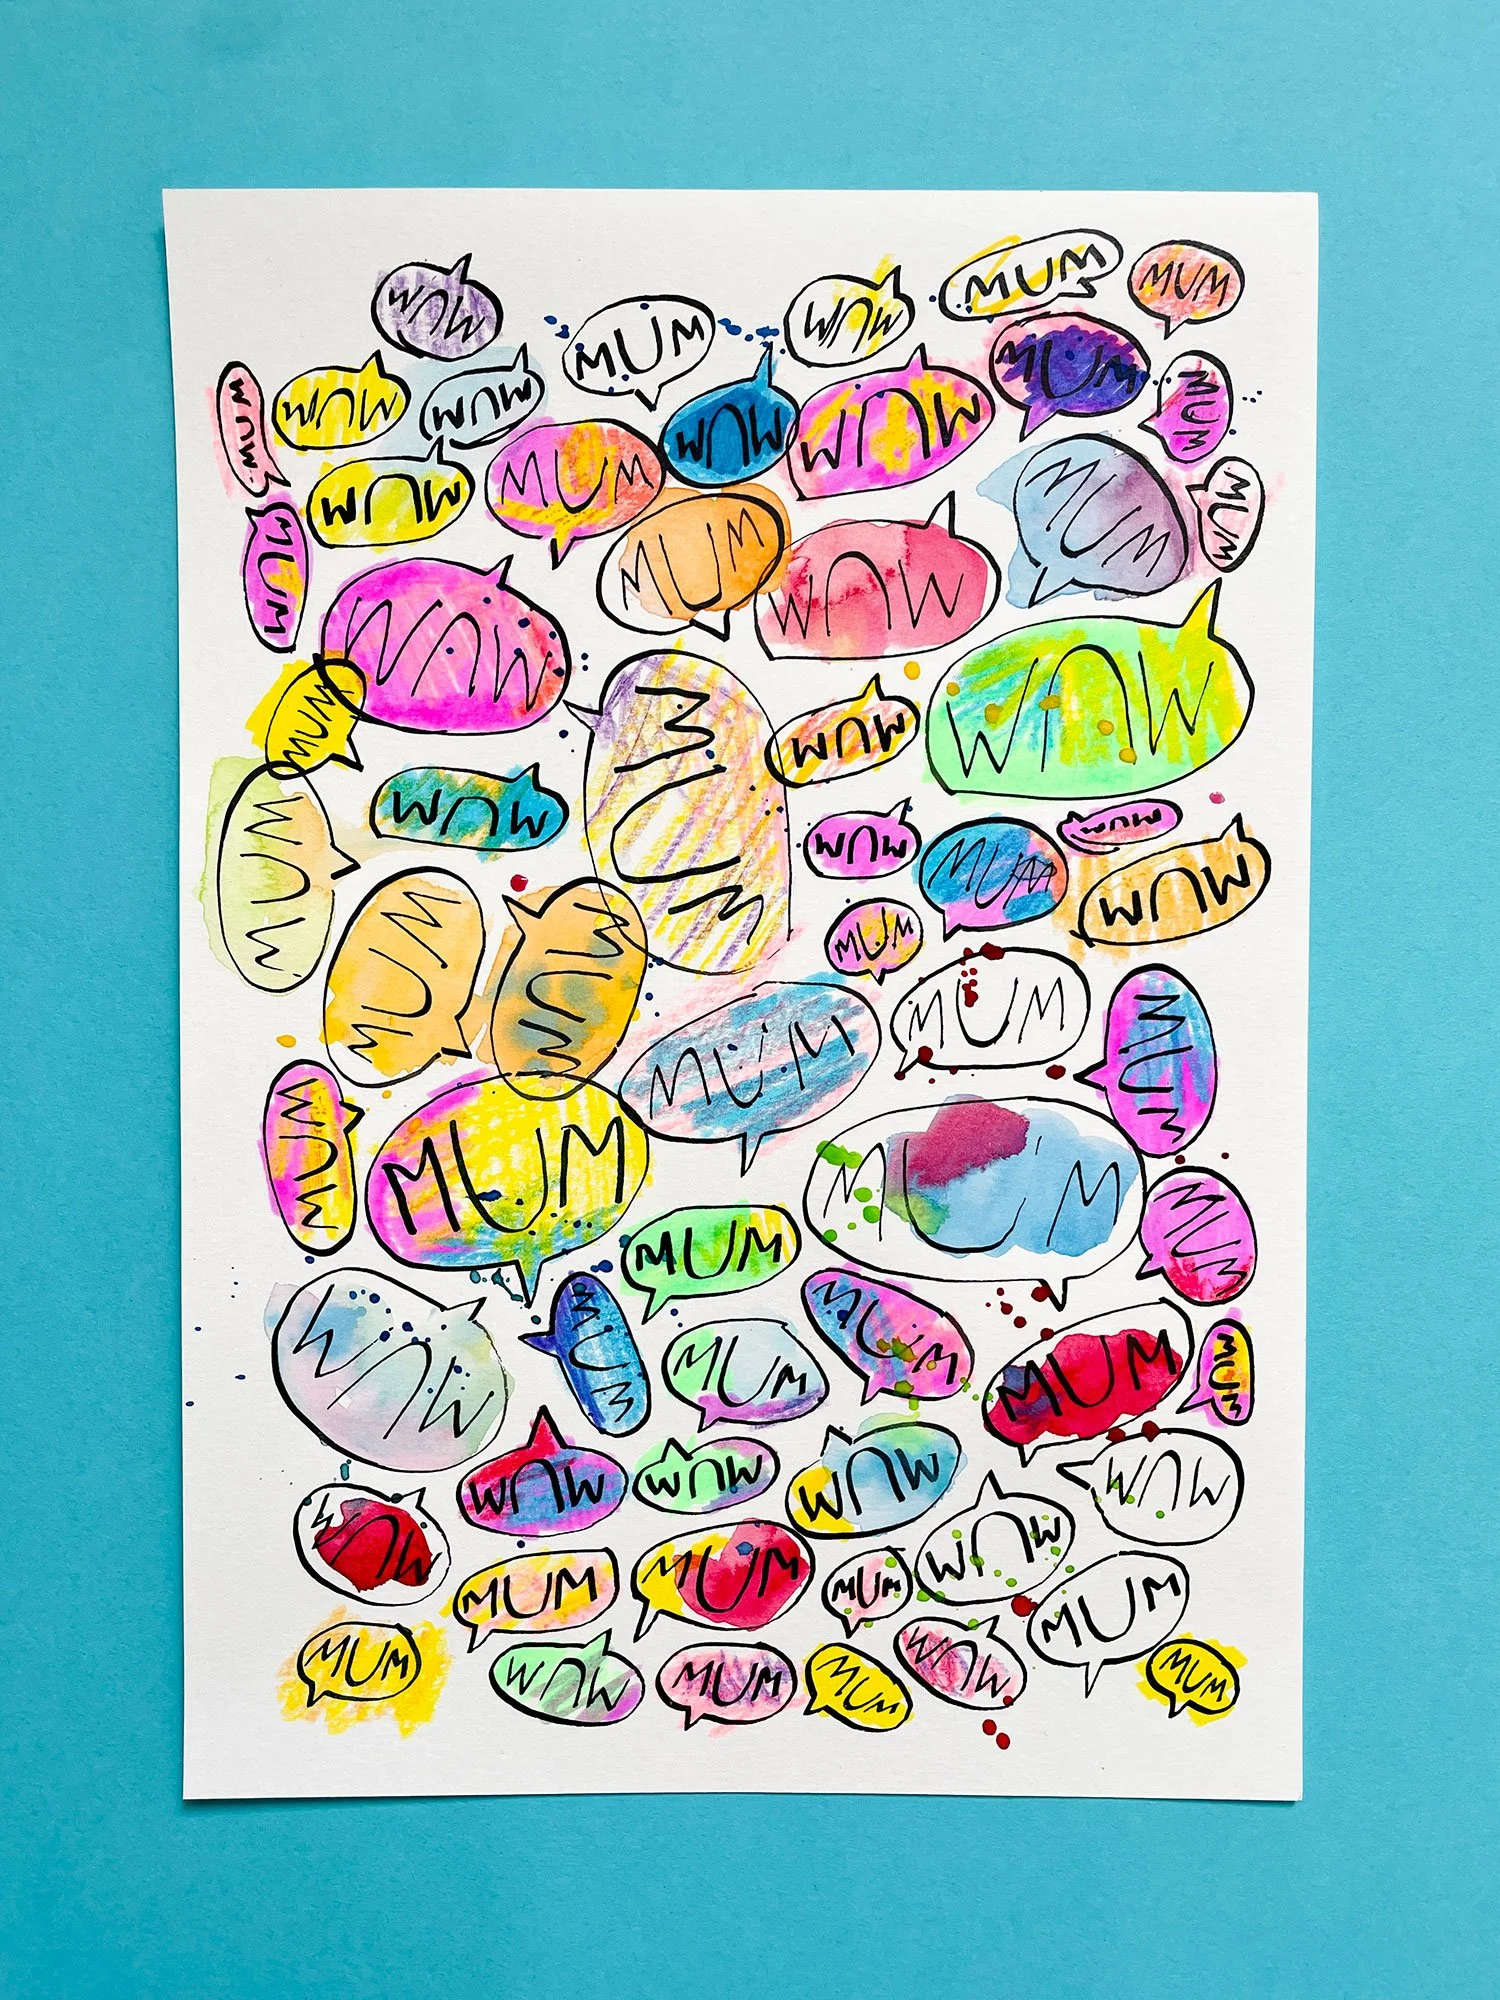 MUM
MUM
MUM
MUM
MUM
MUM
MUM
MUM
MUM
MUM
MUM
MUM
MUM
MUM
MUM
MUM
MUM
MUM
MUM
MUM
MUM
MUM
MUM
MUM
MUM
MUM
MUM
MUM
MUM
MUM
MUM
MUM
MUM
MUM
MUM
MUM
MUM
MUM
MUM
MUM
MUM
MUM
MUM
MUM
MUM
MUM
MUM
MUM
MUM
MUM
MUM
MUM
MUM
MUM
MUM
MUM
MUM
MUM
MUM
MUM
MUM
MUM
MUM